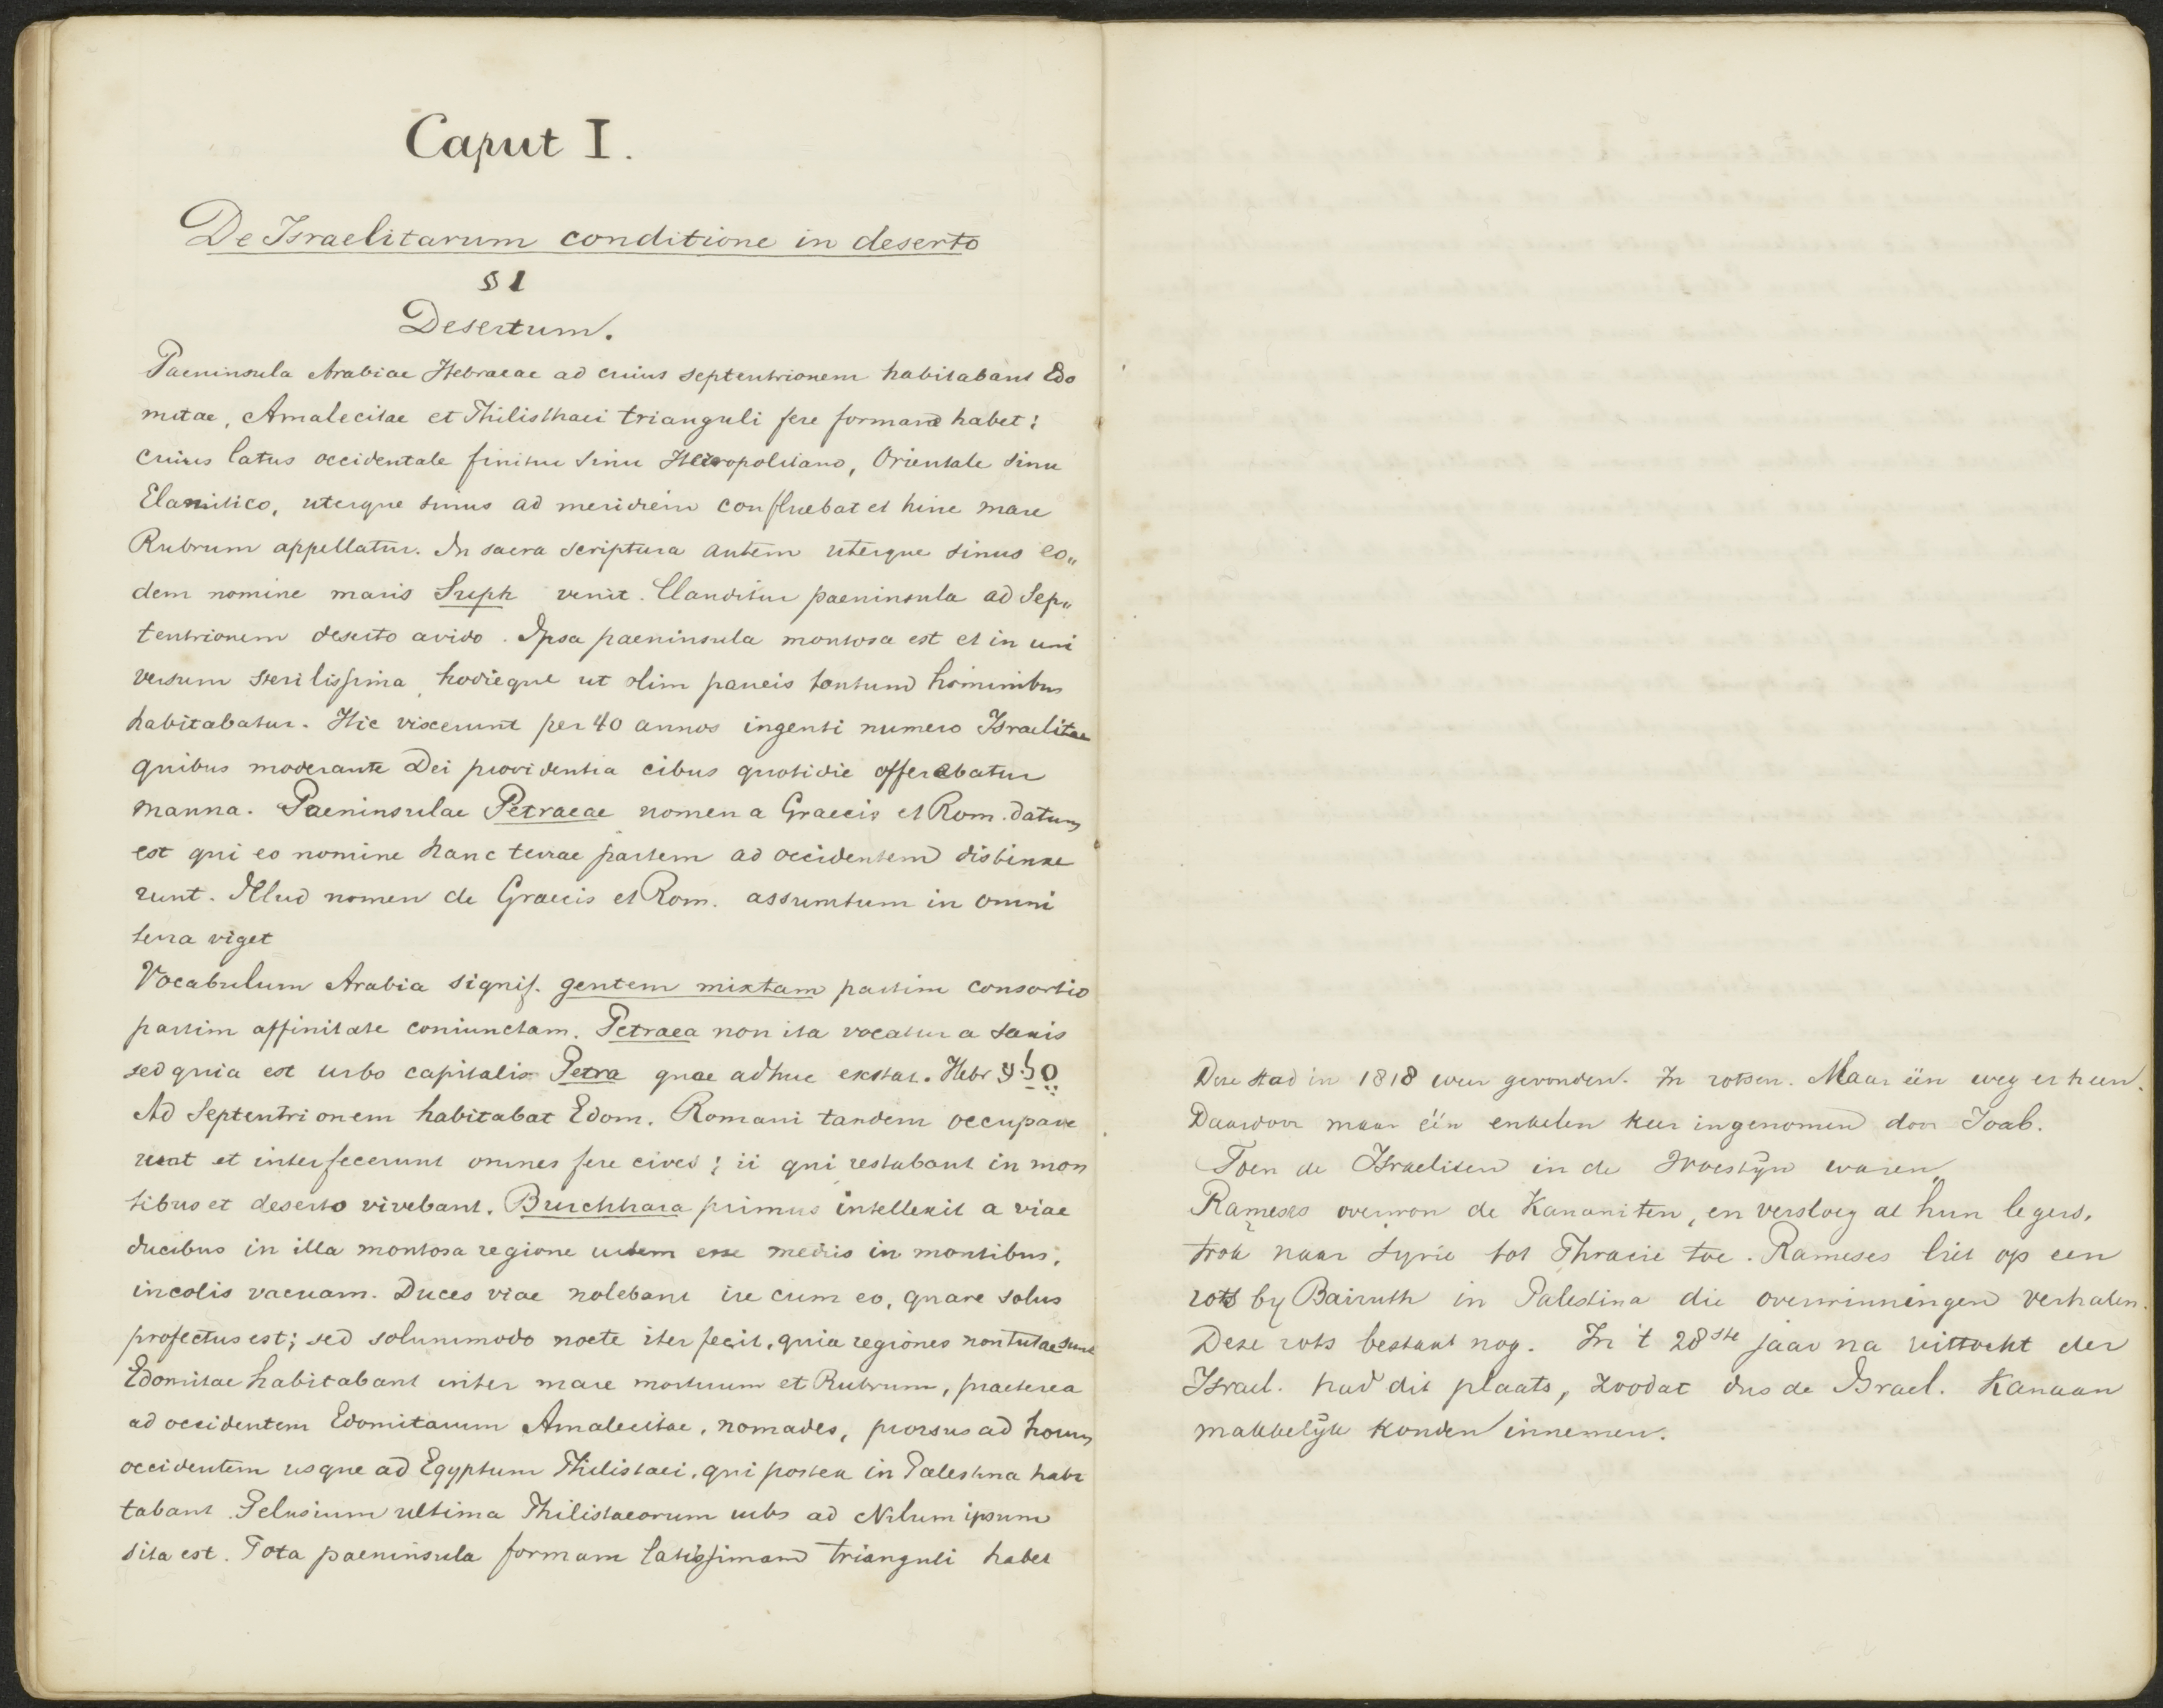 Caput I.
De Israelitarum conditione in deserto
§ 1
Desertum.
Paeninsula Arabiae Hebraeae ad cuius septentrionem habitabant Edo
mitae, Amalecitae et Philisthaei trianguli fere formam habet;
cuius latus occidentale finitur sinu Heroopolitano, Orientale sinu
Elanitico, uterque sinus ad meridiem confluebat et hinc mare
Rubrum appellatur. In sacra scriptura autem uterque sinus eo„
dem nomine maris Suph venit. Clauditur paeninsula ad Sep„
tentrionem deserto avido. Ipsa paeninsula montosa est et in uni
versum sterilissima, hodieque ut olim paucis tantum hominibus
habitabatur. Hic vixerunt per 40 annos ingenti numero Israelitae
quibus moderante Dei providentia cibus quotidie offerebatur
manna. Paeninsulae Petraeae nomen a Graecis et Rom. datum
est qui eo nomine hanc terrae partem ad occidentem distinxe
runt. Illud nomen de Graecis et Rom. assumtum in omni
terra viget
Vocabulum Arabia signif. gentem mixtam partim consortio
partim affinitate coniunctam. Petraea non ita vocatur a saxis
sed quia est urbs capitalis Petra quae adhuc exstat. Hebr סֶלַע
Ad Septentrionem habitabat Edom. Romani tandem occupave
runt et interfecerunt omnes fere cives; ii qui restabant in mon
tibus et deserto vivebant. Burchhara primus intellexit a viae
ducibus in illa montosa regione urbem esse mediis in montibus,
incolis vacuam. Duces viae nolebant ire cum eo, quare solus
profectus est; sed solummodo nocte iter fecit, quia regiones non tutae sunt
Edomitae habitabant inter mare mortuum et Rubrum, praeterea
ad occidentem Edomitarum Amalecitae, nomades, prorsus ad horum
occidentem usque ad Egyptum Philistaei, qui postea in Palestina habi
tabant. Pelusium ultima Philistaeorum urbs ad Nilum ipsum
sita est. Tota paeninsula formam latissimam trianguli habet
Deze stad in 1818 weer gevonden. In rotsen. Maar één weg er heen.
Daardoor maar één enkelen keer ingenomen door Joab.
Toen de Israeliten in de Woestijn waren,
Rameses overwon de Kananiten, en versloeg al hun legers,
trok naar Syrie tot Thracie toe. Rameses liet op een
rots by Bairuth in Palestina die overwinningen verhalen.
Deze rots bestaat nog. In 't 28ste jaar na uittocht der
Israel. had dit plaats, zoodat dus de Israel. Kanaan
makkelijk konden innemen.